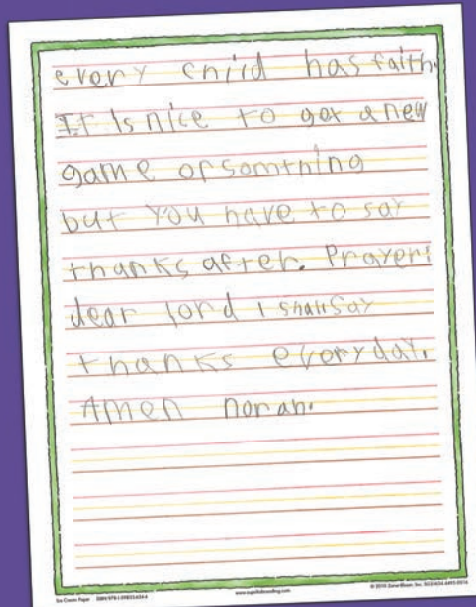 every child has faith.
It is nice to get a new
game or somthing
but you have to say
thanks after. Prayer:
dear lord I shall say
thanks everyday.
Amen norah.
www.zaner-bloser.com